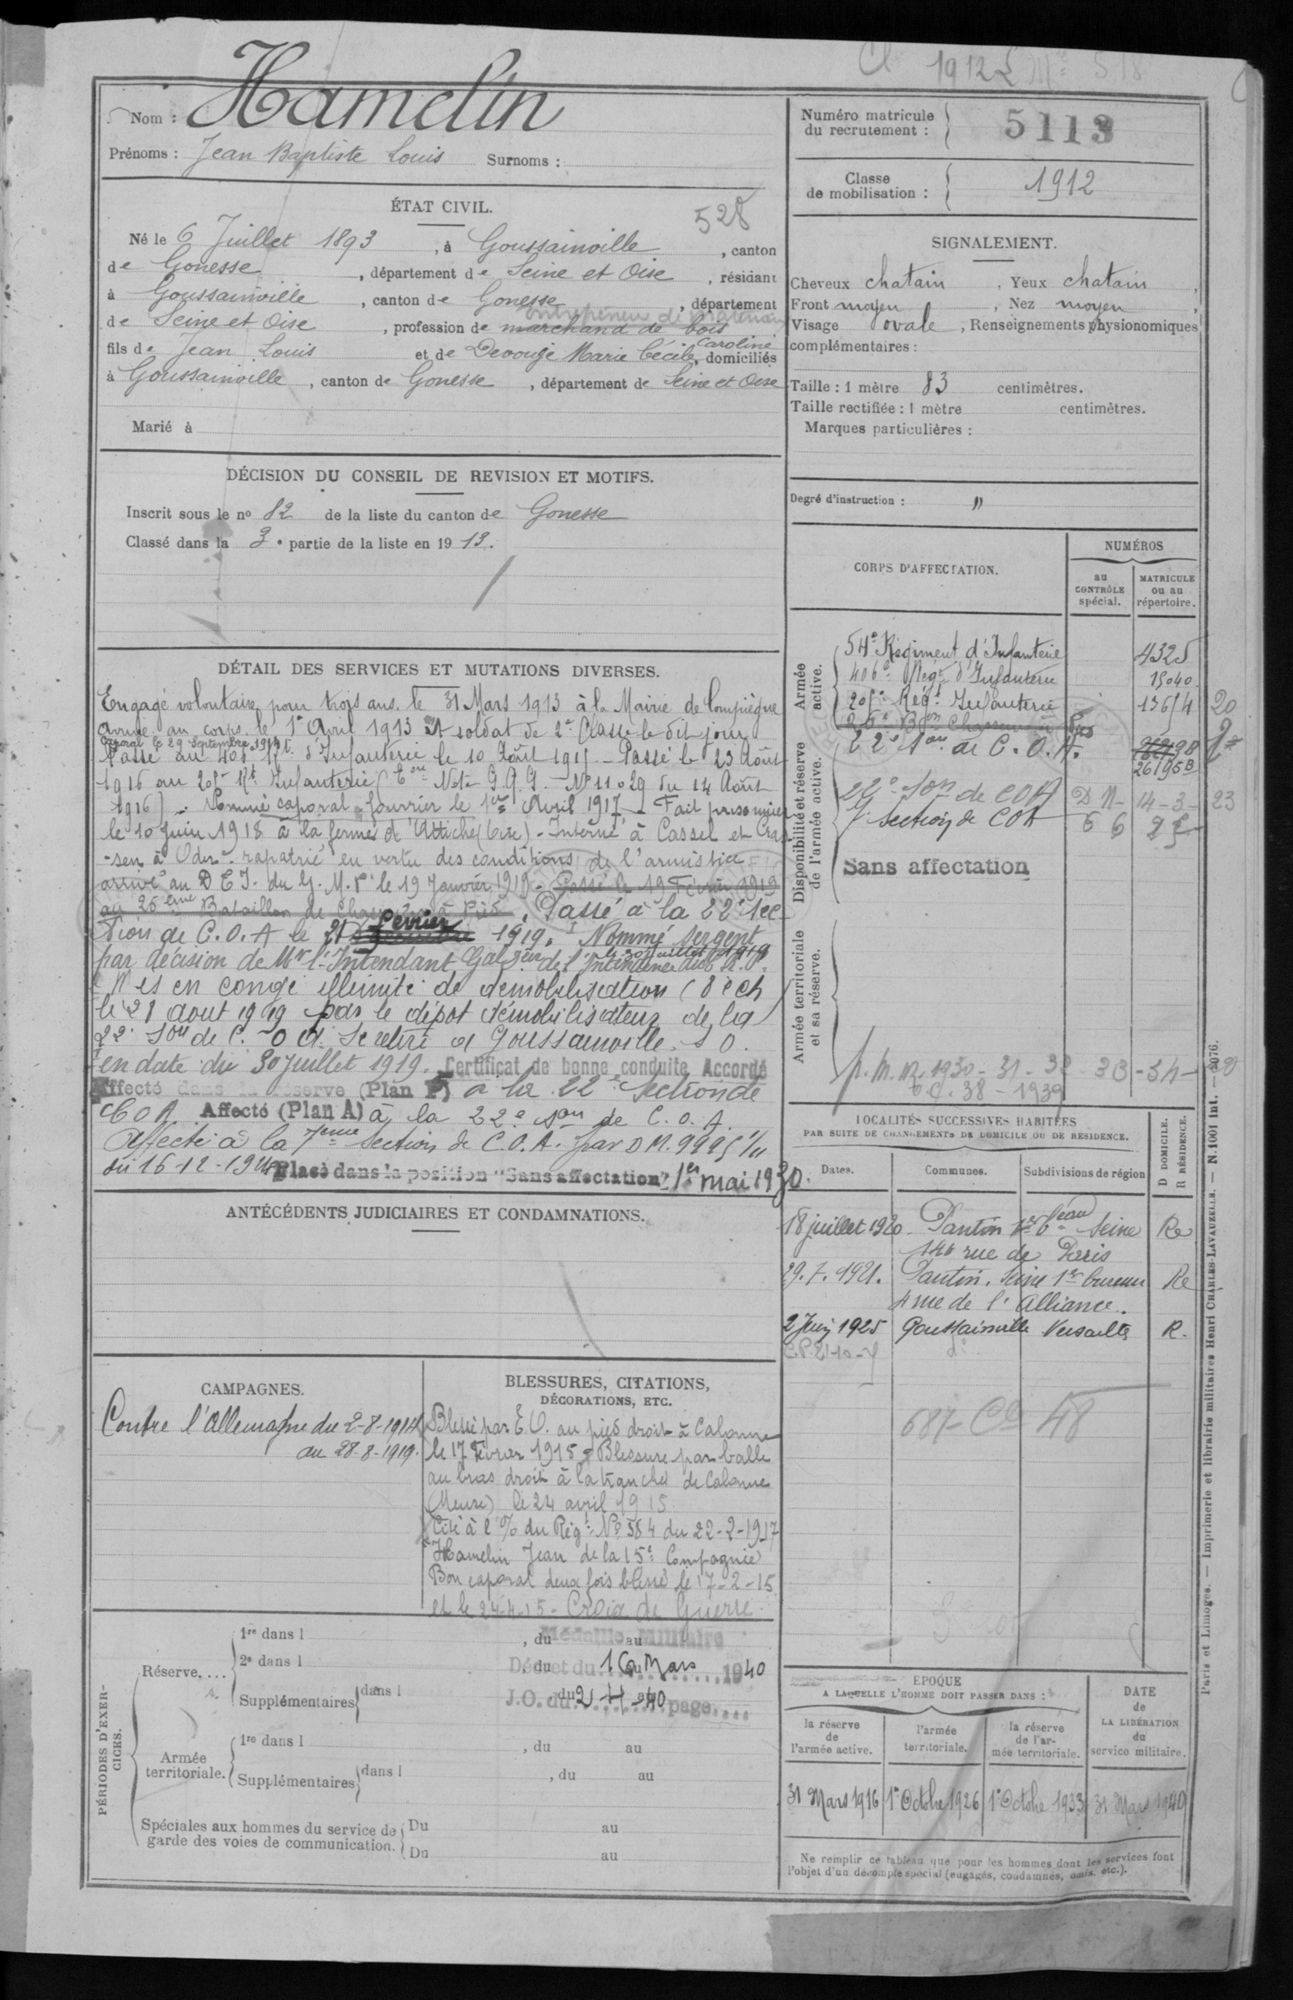 Cl 1912
Nom : Hamelin
Prénoms : Jean Baptiste Louis Surnoms :
ÉTAT CIVIL.
528
Né le 6 Juillet 1893, à Goussainville, canton
de Gonesse, département de Seine et Oise, résidant
à Goussainville, canton de Gonesse, département
entrepreneur de
de Seine et Oise, profession de marchand de bois
Caroline
fils de Jean Louis et de Devouge Marie Cécile, domiciliés
à Goussainville, canton de Gonesse, département de Seine et Oise
Marié à
DÉCISION DU CONSEIL DE REVISION ET MOTIFS.
Inscrit sous le no 82 de la liste du canton de Gonesse
Classé dans la 3e partie de la liste en 1913.
DÉTAIL DES SERVICES ET MUTATIONS DIVERSES.
Engagé volontaire pour trois ans le 31 Mars 1913 à la Mairie de Compiègne
Arrivé au corps le 1er Avril 1913 et soldat de 2e classe le dit jour
Caporal le 29 Septembre 1914
Passé au 406 Rt d'Infanterie le 10 Août 1915 - Passé le 23 Août
1916 au 205e Rt Infanterie (Note G.Q.G. - No 11029 du 14 Août
1916). Nommé caporal fourrier le 1er Avril 1917 - Fait prisonnier
le 10 Juin 1918 à la ferme d'Attiche (Oise) - Interné à Cassel et Cras-
-sen à Oder. rapatrié en vertu des conditions de l'armistice
arrivé au D.E.I. du G.M.P. le 19 Janvier 1919 - Passé le 19 Février 1919
au 26ème Bataillon de Chasseurs à Pied. Passé à la 22e Sec
tion de C.O.A le 21 février 1919. Nommé Sergent
le 30 juillet 1919
par décision de Mr l'Intendant Gal de l'Intendance
Mis en congé illimité de démobilisation (8e éch
le 28 aout 1919 par le dépot démobilisateur de la
22e Son de C.O.A. Se retire à Goussainville S O.
en date du 30 juillet 1919. Certificat de bonne conduite Accordé
Affecté dans la réserve (Plan P) à la 22e Section de
C O A. Affecté (Plan A) à la 22e Son de C.O.A.
Affecté à la 7ème Section de C.O.A. par DM. 9225 1/11
du 16-12-1924 Placé dans la position "Sans affectation" 1er mai 1930.
ANTÉCÉDENTS JUDICIAIRES ET CONDAMNATIONS.
CAMPAGNES.
Contre l'Allemagne du 2-8-1914
au 28-8-1919.
BLESSURES, CITATIONS,
DÉCORATIONS, ETC.
Blessé par E.O. au pied droit à Calonne
le 17 Février 1915. Blessure par balle
au bras droit à la tranchée de Calonne
(Meuse) le 24 avril 1915.
Cité à l'O/ du Régt No 584 du 22-2-1917
Hamelin Jean de la 15e Compagnie
Bon caporal deux fois blessé le 17-2-15
et le 24-4-15 - Croix de Guerre
Médaille Militaire
Décret du 16 Mars 1940
J.O. du 2-4-40 page
PÉRIODES D'EXER-
CICES.
Réserve....
1re dans l , du au
2e dans l , du au
Supplémentaires dans l du
Armée
territoriale.
1re dans l , du au
Supplémentaires dans l , du au
Spéciales aux hommes du service de
garde des voies de communication.
Du au
Du au
Numéro matricule
du recrutement : 5113
Classe
de mobilisation : 1912
SIGNALEMENT.
Cheveux chatain, Yeux chatain,
Front moyen, Nez moyen,
Visage ovale, Renseignements physionomiques
complémentaires :
Taille : 1 mètre 83 centimètres.
Taille rectifiée : 1 mètre centimètres.
Marques particulières :
Degré d'instruction : "
CORPS D'AFFECTATION.
NUMÉROS
au
CONTRÔLE
spécial.
MATRICULE
ou au
répertoire.
Armée
active.
54e Régiment d'Infanterie 4325
406e Régt d'Infanterie 15040
205e Régt Infanterie 13654 20
26e Bon Chasseurs
Disponibilité et réserve
de l'armée active.
22e Son de C.O.A.
26195B
22e Son de COA D N - 14-3-23
7e Section de COA 6 6 25
Sans affectation
Armée territoriale
et sa réserve.
1930-31-32-33-34-
38-1939
LOCALITÉS SUCCESSIVES HABITÉES
PAR SUITE DE CHANGEMENTS DE DOMICILE OU DE RESIDENCE.
Dates.
Communes.
Subdivisions de région
D DOMICILE.
R RÉSIDENCE.
18 juillet 1920 Pantin 1er Beau Seine Re
140 rue de Paris
29.7.1921. Pantin. Seine 1er bureau Re
4 rue de l'Alliance.
2 Juin 1925 Goussainville Versailles R.
687 - Co 48
EPOQUE
A LAQUELLE L'HOMME DOIT PASSER DANS :
la réserve
de
l'armée active.
l'armée
territoriale.
la réserve
de l'ar-
mée territoriale.
DATE
de
LA LIBÉRATION
du
service militaire.
31 Mars 1916 1er Octobre 1926 1er Octobre 1933 31 Mars 1940
Ne remplir ce tableau que pour les hommes dont les services font
l'objet d'un décompte spécial (engagés, condamnés, omis, etc.).
Paris et Limoges. — Imprimerie et librairie militaires Henri CHARLES-LAVAUZELLE. — N. 1001 int. —